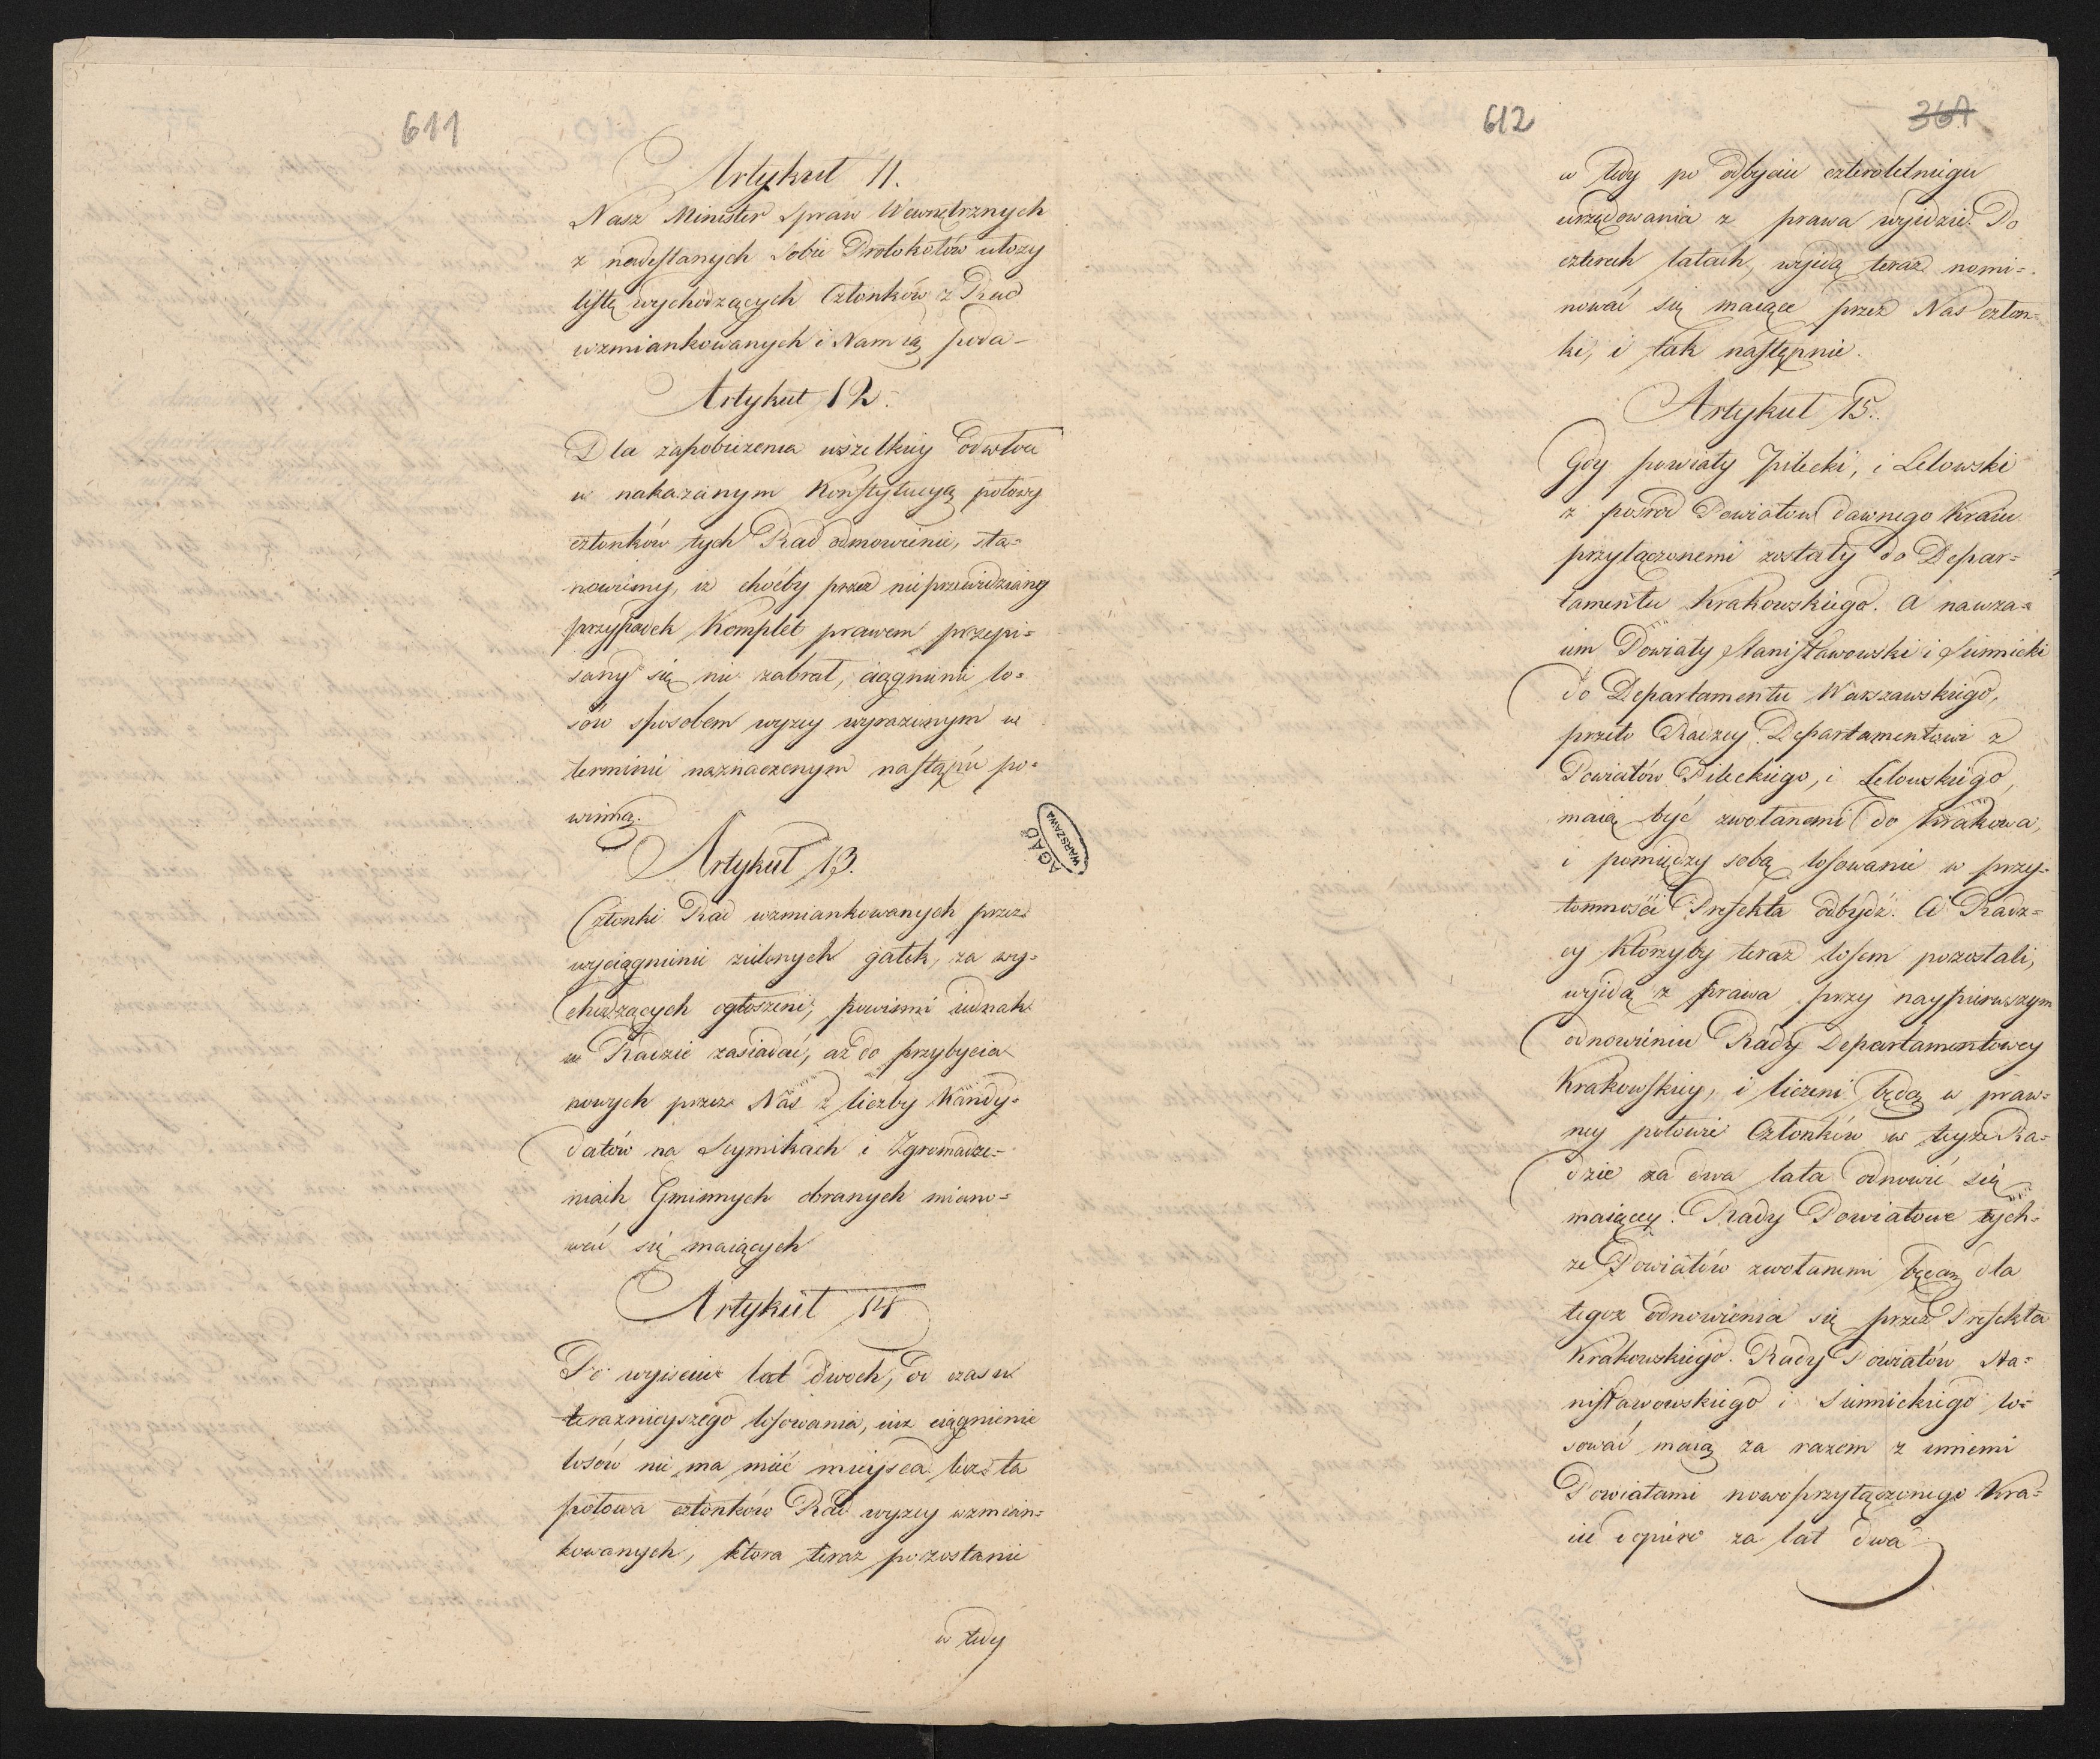 611
Artykuł 11.
Nasz Minister Spraw Wewnętrznych
z nadesłanych sobie Protokołów ułoży
listę wychodzących Członków z Rad
wzmiankowanych i Nam ią poda –
Artykuł 12.
Dla zapobieżenia wszelkiey odwłoce
w nakazanym Konstytucyą połowy
członków tych Rad odnowieniu, sta=
nowiemy, iż choćby przez nieprzewidziany
przypadek Komplet prawem przepi=
sany się nie zebrał, ciągnienie lo=
sów sposobem wyżey wyrażonym w
terminie naznaczonym nastąpić po=
winno.
Artykuł 13.
Członki Rad wzmiankowanych przez
wyciągnienie zielonych gałek, za wy=
chodzących ogłoszeni, powinni iednak
w Radzie zasiadać, aż do przybycia
nowych przez Nas z liczby Kandy=
datów na Seymikach i Zgromadze=
niach Gminnych obranych miano=
wać się maiących
Artykuł 14
Po wyiściu lat dwoch, od czasu
teraznieyszego losowania, iuż ciągnienie
losów nie ma mieć mieysca lecz ta
połowa członków Rad wyżey wzmian=
kowanych, ktora teraz pozostanie
w tedy
AGAD
WARSZAWA
612
367
w tedy po odbyciu czteroletniego
urzędowania z prawa wyidzie. Po
czterech latach, wyidą teraz nomi=
nować się maiące przez Nas człon=
ki, i tak następnie.
Artykuł 15.
Gdy powiaty Pilecki, i Lelowski
z pośrod Powiatów dawnego Kraiu
przyłączonemi zostały do Depar=
tamentu Krakowskiego. A nawza=
iem Powiaty Stanisławowski i Siennicki
do Departamentu Warszawskiego,
przeto Radzcy Departamentowi z
Powiatów Pileckiego, i Lelowskiego,
maią być zwołanemi do Krakowa,
i pomiędzy sobą losowanie w przy=
tomności Prefekta odbydź. Ci Radz=
cy ktorzyby teraz losem pozostali,
wyidą z prawa przy naypierwszym
odnowieniu Rady Departamentowey
Krakowskiey, i liczeni będą w praw=
ney połowie Członków w teyże Ra=
dzie za dwa lata odnowić się
maiącey. Rady Powiatowe tych=
że Powiatów zwołanemi będą dla
tegoż odnowienia się przez Prefekta
Krakowskiego. Rady Powiatów Sta=
nisławowskiego i Siennickiego lo=
sować maią za razem z innemi
Powiatami nowoprzyłączonego Kra=
iu dopiero za lat dwa